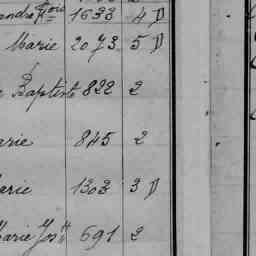 1633 4 D
Marie 2073 5 D
Baptiste 822 2
arie 845 2
arie 1303 3 D
Marie Jos 691 2